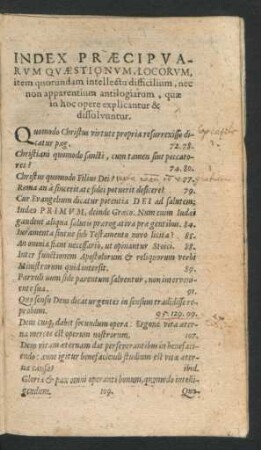 INDEX PRÆCIPVA-
RVM QVÆSTIONVM, LOCORVM,
item quorundam intellectu difficilium, nec
non apparentium antilogiarum, quæ
in hoc opere explicantur &
dissoluuntur.
Quomodo Christus virtute propria resurrexisse di-
catur pag. 72.78.
Christiani quomodo sancti, cum tamen sint peccato-
res? 74.80.
Christus quomodo Filius Dei?
Romana à sinceritate fidei potuerit deficere? 79.
Cur Euangelium dicatur potentia DEI ad salutem,
Iudæo PRIMVM, deinde Græco. Num enim Iudæi
gaudent aliqua salutis prærogatiua præ gentibus. 84.
Iuramenta sintne sub Testamento nouo licita? 81.
An omnia fiant necessariò, ut opinantur Stoici. 88.
Inter functionem Apostolorum & reliquorum verbi
Ministrorum quid intersit. 89.
Paruuli num fide parentum saluentur, non interueni-
ente sua. 91.
Quo sensu Deus dicatur gentes in sensum tradidisse re-
probum. 95.129.99.
Deus cuiq; dabit secundum opera: Ergone vita æter-
na merces est operum nostrorum. 107.
Deus vitam æternam dat perseuerantibus in benefaci-
endo: anne igitur benefaciendi studium est vitæ æter-
næ causa? ibid.
Gloria & pax omni operanti bonum, quomodo intelli-
gendum. 109. Quo-